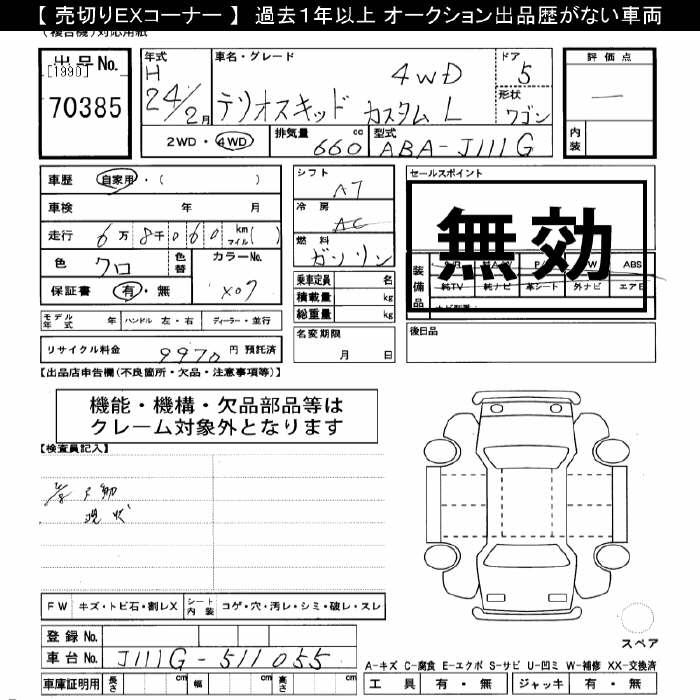 【 売切りEXコーナー 】 過去1年以上 オークション出品歴がない車両
(複合機)対応用紙
出品No.
[1990]
70385
年式
H
24/2月
車名・グレード
4WD
テリオスキッド カスタム L
ドア
5
形状
ワゴン
評価点
—
内装
2WD・4WD
排気量
660cc
型式
ABA-J111G
車歴 自家用・( )
車検 年 月
走行 6万8千060 km マイル( )
色 クロ
色替
カラーNo.
X07
保証書 有・無
シフト
A7
冷房
AC
燃料
ガソリン
乗車定員 名
積載量 kg
総重量 kg
セールスポイント
無効
装備品
ABS
純TV 純ナビ 革シート 外ナビ エアB
モデル年式 年 ハンドル 左・右 ディーラー・並行
リサイクル料金 9970 円 預託済
名変期限
月 日
後日品
【出品店申告欄(不良箇所・欠品・注意事項等)】
機能・機構・欠品部品等は
クレーム対象外となります
【検査員記入】
現状
FW キズ・トビ石・割レX
シート内装 コゲ・穴・汚レ・シミ・破レ・スレ
スペア
登録No.
車台No. J111G-511055
車庫証明用 長さ cm 幅 cm 高さ cm
A-キズ C-腐食 E-エクボ S-サビ U-凹ミ W-補修 XX-交換済
工具 有・無 ジャッキ 有・無